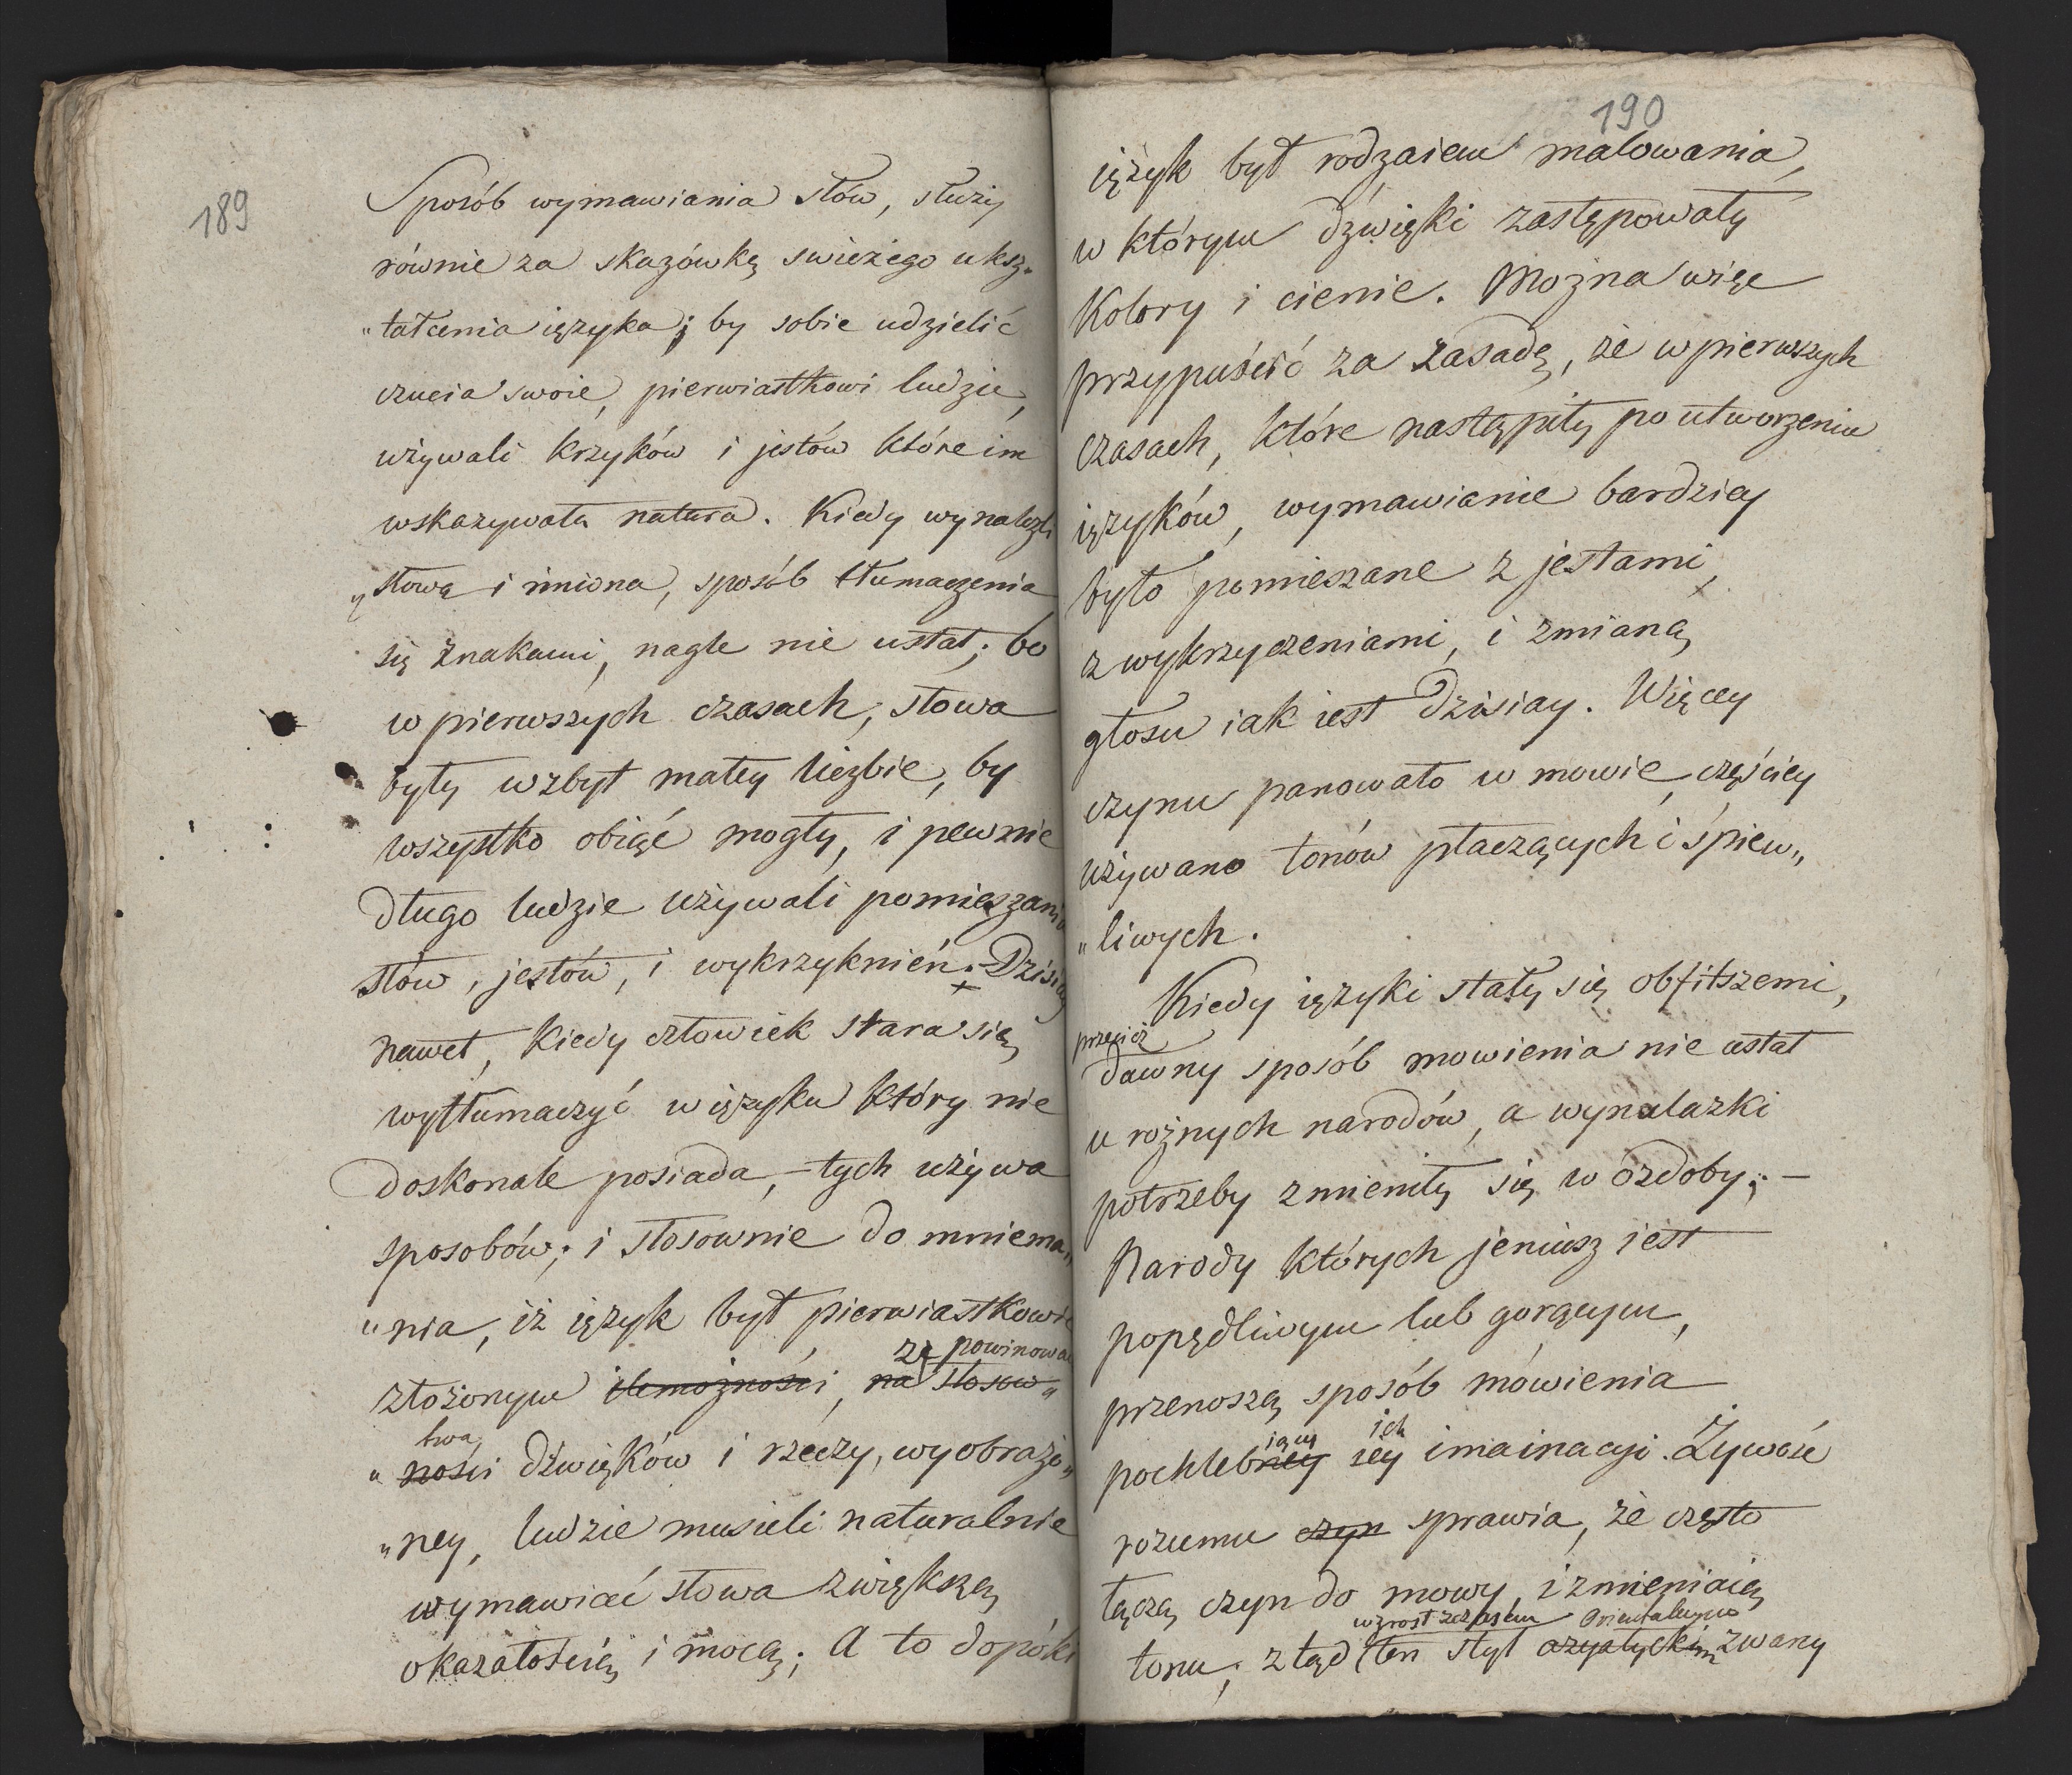 189
Sposób wymawiania słów, służy
równie za skazówkę swieżego uksz„
„tałcenia ięzyka; by sobie udzielić
czucia swoie, pierwiastkowi ludzie,
używali krzyków i jestów które im
wskazywała natura. Kiedy wynaleźli
słowa i imiona, sposób tłumaczenia
się znakami, nagle nie ustał; bo
w pierwszych czasach, słowa
były wzbyt małey liczbie, by
wszystko obiąć mogły, i pewnie
długo ludzie używali pomieszania
słów, jestów, i wykrzyknień. Dzisiay
nawet, kiedy człowiek stara się
wytłumaczyć w ięzyku który nie
doskonale posiada, – tych używa
sposobów; i stosownie do mniema„
„nia, iż ięzyk był pierwiastkowie
za powinowac
złożonym ilemożności, na stosow„
twa
„ności dźwięków i rzeczy, wyobrażo„
„ney, ludzie musieli naturalnie
wymawiać słowa zwiększą
okazałością i mocą; A to dopóki
190
ięzyk był rodzaiem malowania,
w którym dźwięki zastępowały
kolory i cienie. Można więc
przypuścić za zasadę, że w pierwszych
czasach, które nastąpiły po utworzeniu
ięzyków, wymawianie bardziey
było pomieszane z jestami,
z wykrzyczeniami, i zmianą
głosu iak iest dzisiay. Więcey
czynu panowało w mowie, częściey
używano tonów płaczących i śpiew„
„liwych.
Kiedy ięzyki stały się obfitszemi,
przecież
dawny sposób mowienia nie ustał
u rożnych narodów, a wynalazki
potrzeby zmieniły się w ozdoby; –
Narody których jeniusz iest
popędliwym lub gorącym,
przenoszą sposób mówienia
iący ich
pochlebney iey imainacyi. Żywość
rozumu czyn sprawia, że często
łączą czyn do mowy, i zmieniaią
wzrost zczasem Orientalnym
tonu; ztąd ten styl azyatyckim zwany